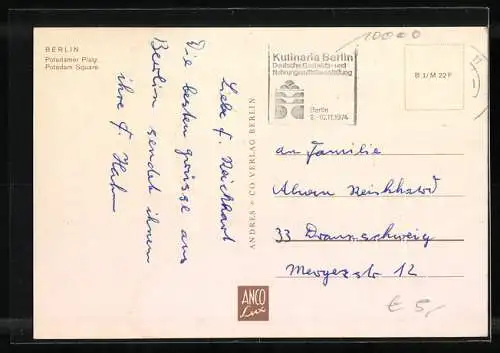 BERLIN
Potsdamer Platz
Potsdam Square
Liebe F. Reichhart
Die besten grüsse aus
Berlin sendet ihnen
ihre F. Hahn
ANDRES + CO VERLAG BERLIN
ANCO
Lux
10000
Kulinaria Berlin
Deutsche Gastwirts- und
Nahrungsmittelausstellung
Berlin
2.-10.11.1974
B 1/M 22 F
an Familie
Reichhard
33 Braunschweig
Mergesstr 12
€ 5,-